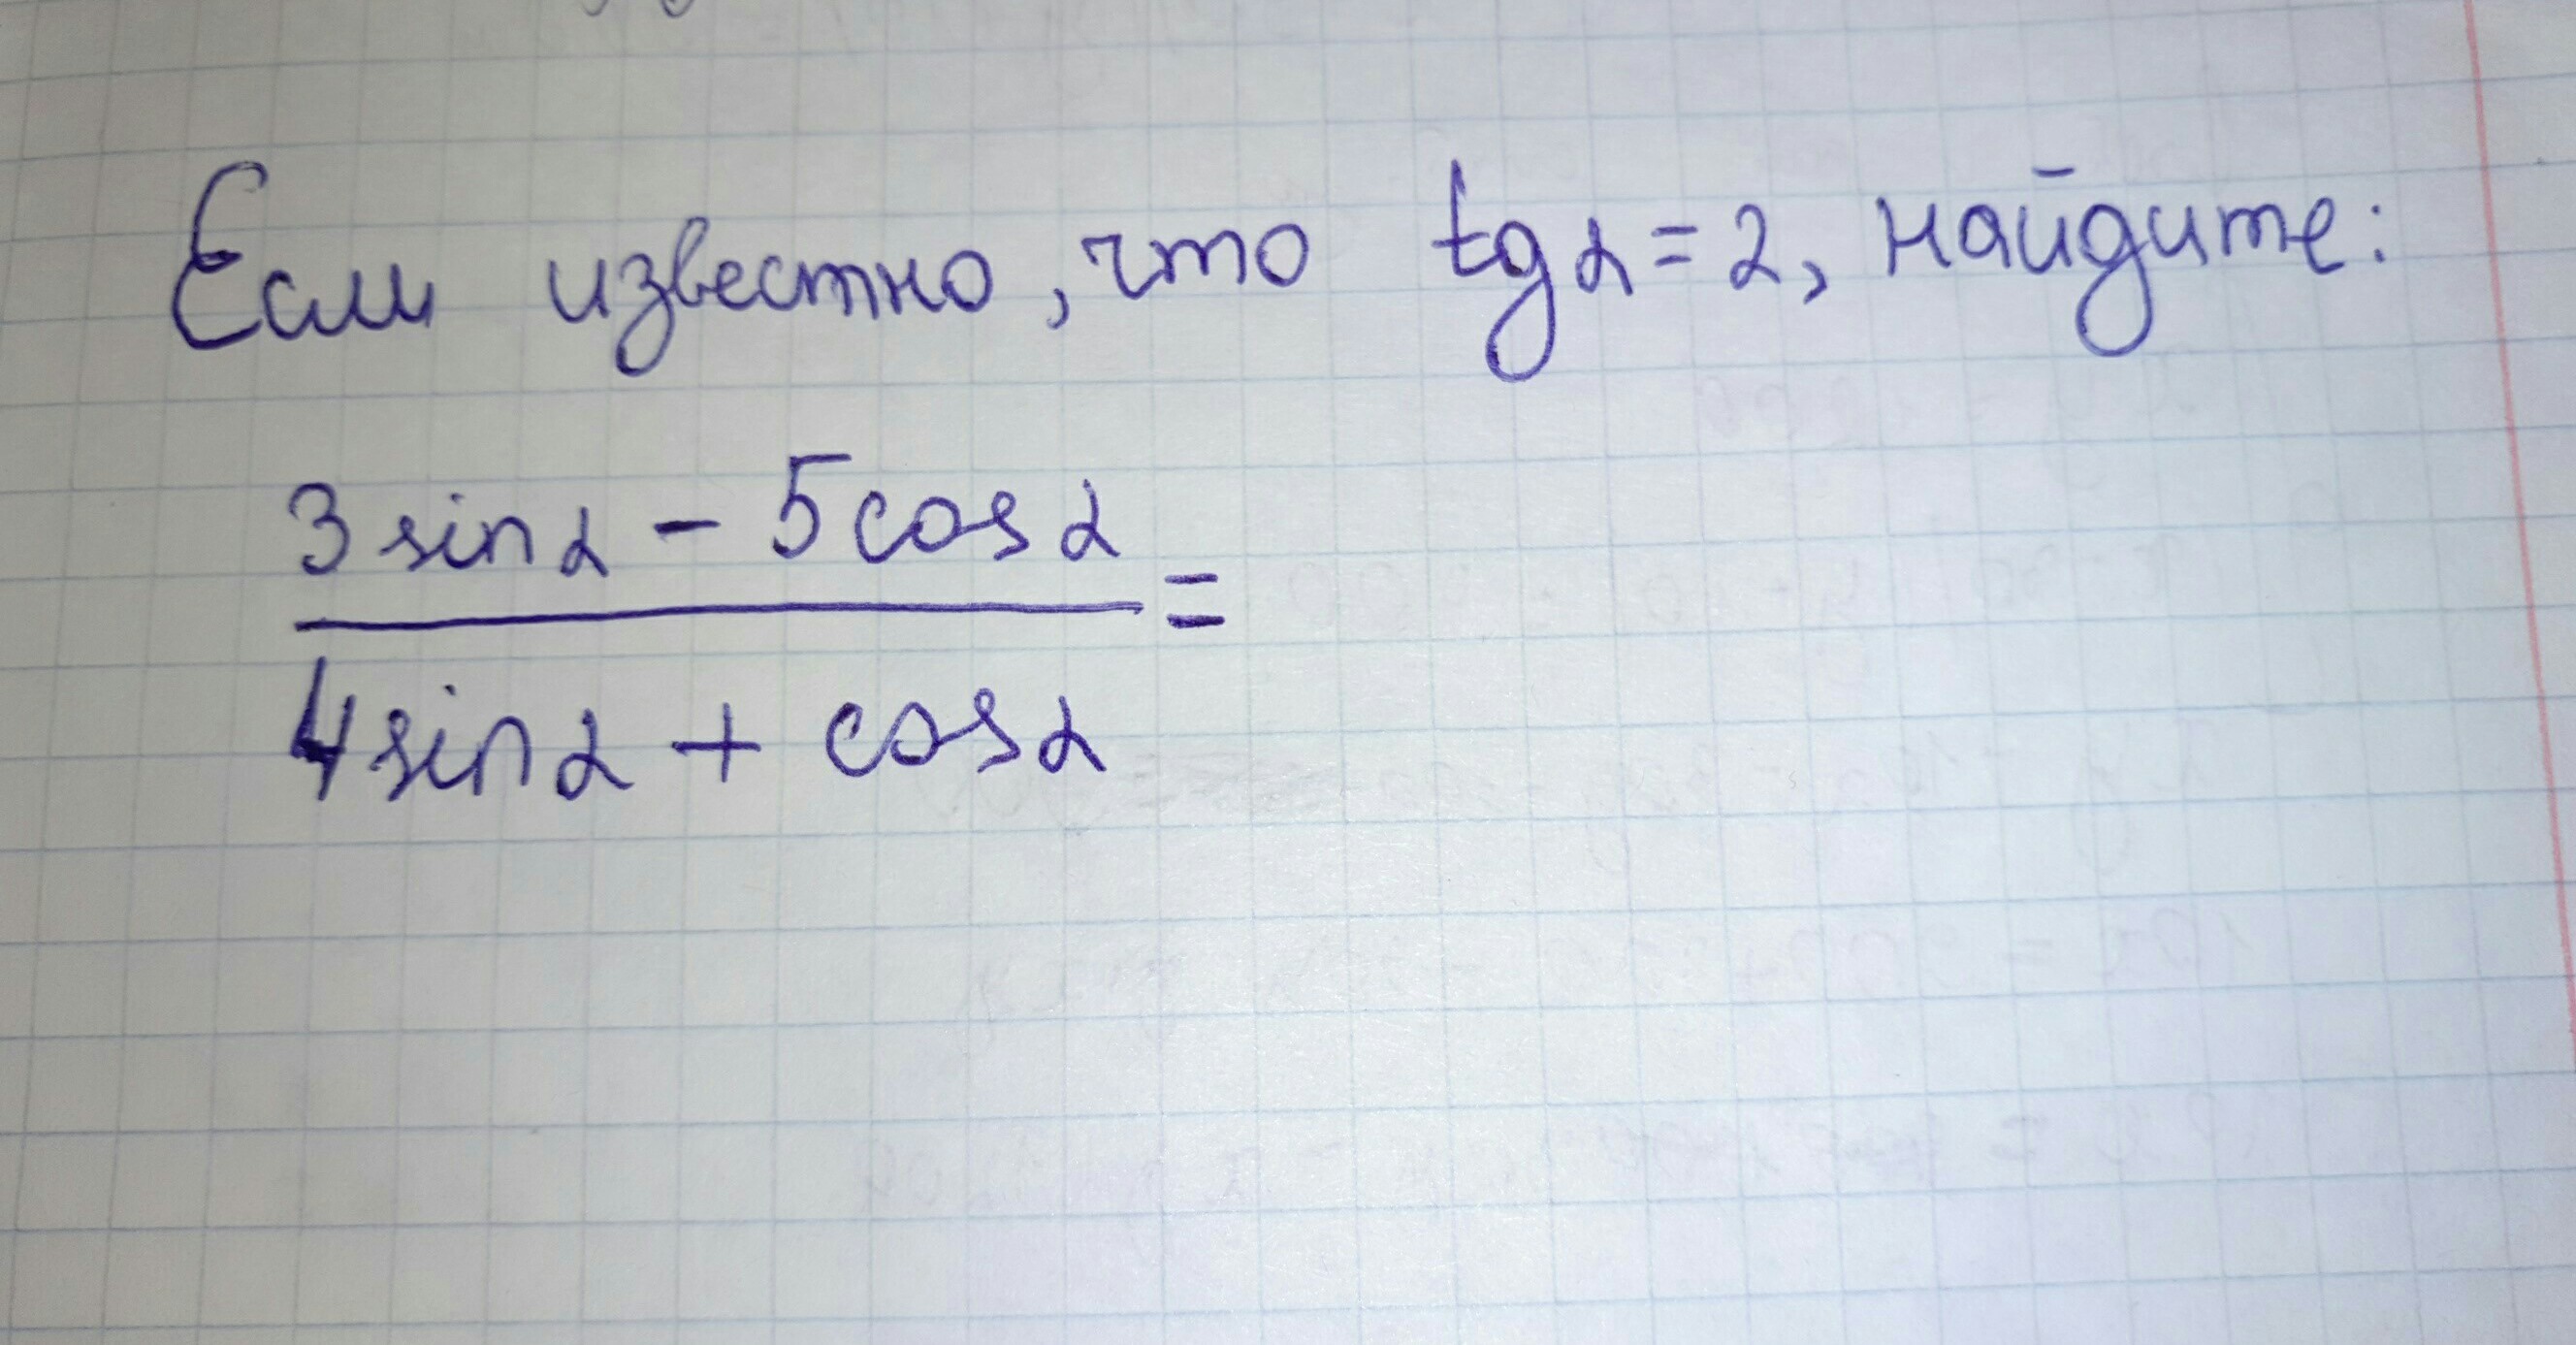 Если известно, что tgα=2, найдите:
3sinα - 5cosα
=
4sinα + cosα